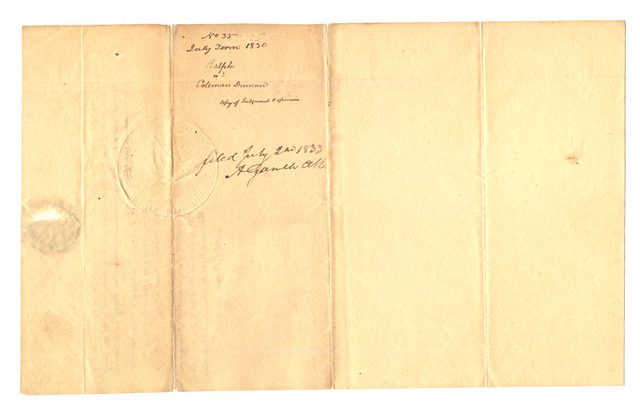 No 35
July Term 1830
Ralph
vs
Coleman Duncan
Copy of Judgment & Opinion
filed July 2nd 1833
A Gamble Clk